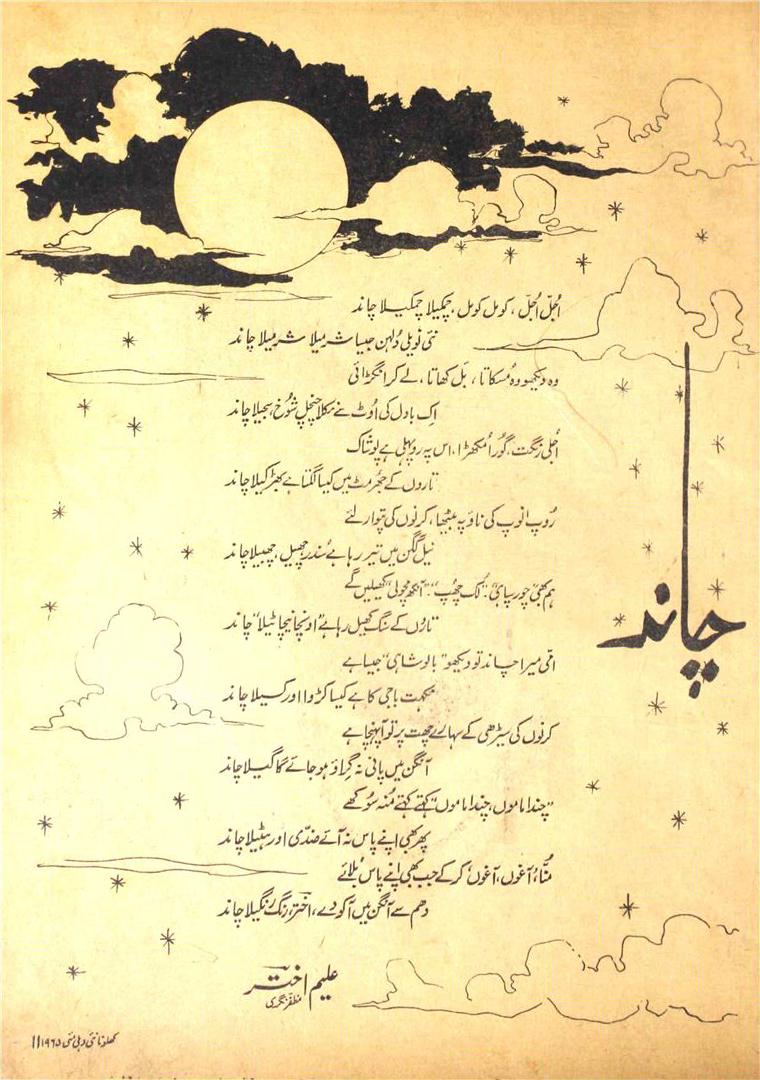 چاند
اُجلّ اُجلّ ، کومل کومل ، چمکیلا چمکیلا چاند
نئی نویلی دُلہن جیسا شرمیلا شرمیلا چاند
وہ دیکھو وہ مُسکاتا ، بَل کھاتا ، لے کر انگڑائی
اِک بادل کی اُوٹ سے نکلا چنچل شُوخ، سجیلا چاند
اُجلی رنگت، گورا مُکھڑا، اس پہ روپہلی ہے پوشاک
تاروں کے جھرمٹ میں کیسا لگتا ہے بھڑکیلا چاند
رُوپ انوپ کی ناؤ پہ بیٹھا، کرنوں کی پتوار لئے
نیل گگن میں تیر رہا ہے سُندر چھیل، چھبیلا چاند
ہم بھی "چور سپاہی"، "لُک چھُپ"، "آنکھ مچولی" کھیلیں گے
تاروں کے سنگ کھیل رہا ہے "اونچا نیچا ٹیلا" چاند
امّی میرا چاند تو دیکھو "بالوشاہی" جیسا ہے
نکہت باجی کا ہے کیسا کڑوا اور کسیلا چاند
کرنوں کی سیڑھی کے سہارے چھت پر تو آپہنچا ہے
آنگن میں پانی نہ گِراؤ ہو جائے گا گیلا چاند
"چندا ماموں، چندا ماموں" کہتے کہتے مُنہ سُوکھے
پھر بھی اپنے پاس نہ آئے ضدّی اور ہٹیلا چاند
مُنّا، "آغوں، آغوں" کر کے جب بھی اپنے پاس بُلائے
دھم سے آنگن میں آکودے، اختر، رنگ رنگیلا چاند
علیم اختر
مظفر نگری
کھلونا نئی دہلی مئی ۱۹۶۵ ۱۱